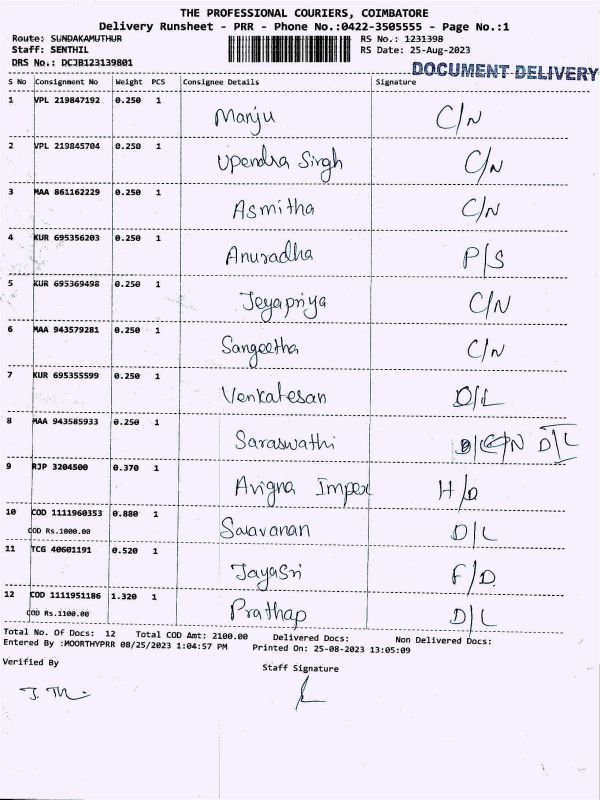 THE PROFESSIONAL COURIERS, COIMBATORE
Delivery Runsheet - PRR - Phone No.:0422-3505555 - Page No.:1
Route: SUNDAKAMUTHUR RS No.: 1231398
Staff: SENTHIL RS Date: 25-Aug-2023
DRS No.: DCJB123139801
DOCUMENT DELIVERY
S No Consignment No Weight PCS Consignee Details Signature
1 VPL 219847192 0.250 1 Manju C/N
2 VPL 219845704 0.250 1 Upendra Singh C/N
3 MAA 861162229 0.250 1 Asmitha C/N
4 KUR 695356203 0.250 1 Anuradha P/S
5 KUR 695369498 0.250 1 Jeyapriya C/N
6 MAA 943579281 0.250 1 Sangeetha C/N
7 KUR 695355599 0.250 1 Venkatesan D/L
8 MAA 943585933 0.250 1 Saraswathi C/N D/L
9 RJP 3204500 0.370 1 Avigna Impex H/D
10 COD 1111960353 0.880 1 Saravanan D/L
COD Rs.1000.00
11 TCG 40601191 0.520 1 JayaSri F/D
12 COD 1111951186 1.320 1 Prathap D/L
COD Rs.1100.00
Total No. Of Docs: 12 Total COD Amt: 2100.00 Delivered Docs: Non Delivered Docs:
Entered By :MOORTHYPRR 08/25/2023 1:04:57 PM Printed On: 25-08-2023 13:05:09
Verified By Staff Signature